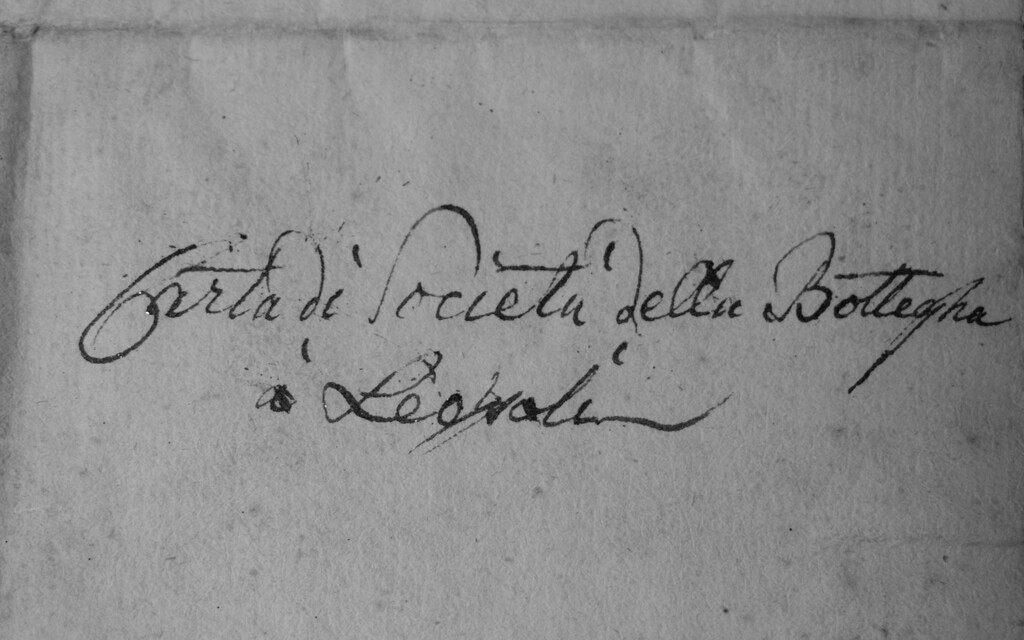 Carta di Società della Bottegha
à Leopoli